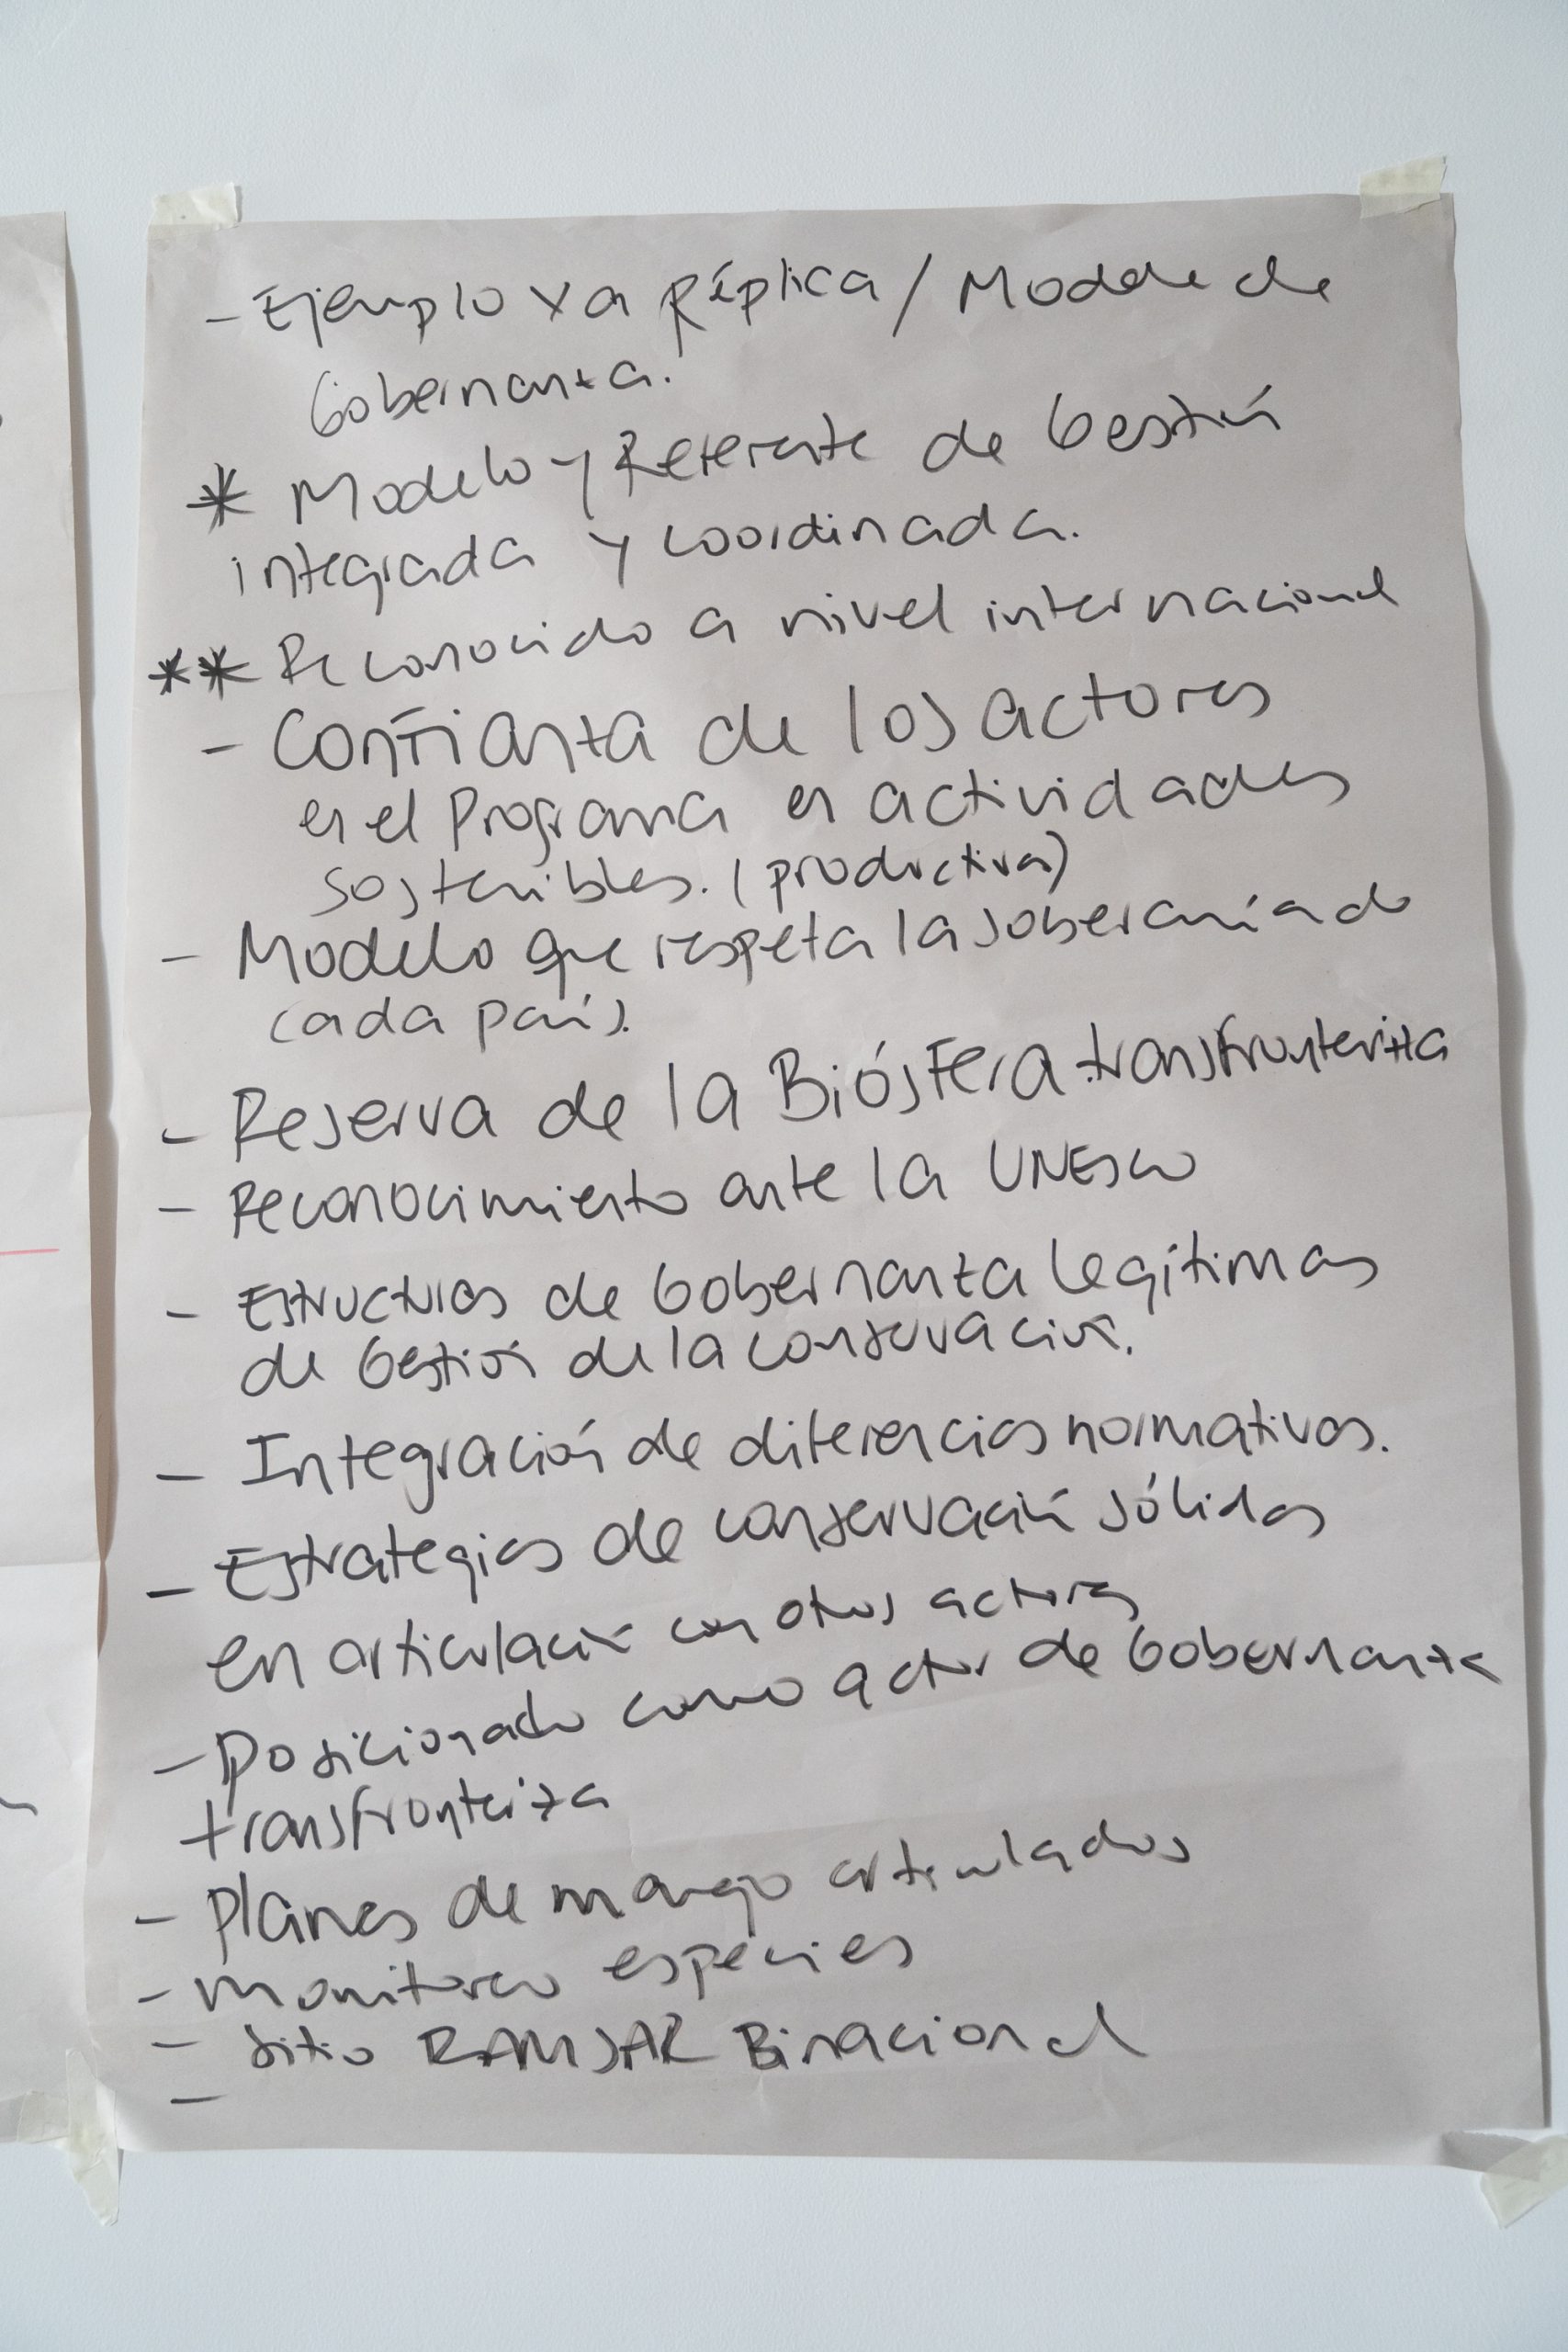 - Ejemplo xa Réplica / Modelo de
Gobernanza.
* Modelo y Referente de Gestión
integrada y coordinada.
** Reconocido a nivel internacional
- Confianza de los actores
en el Programa en actividades
sostenibles. (productiva)
- Modelo que respeta la soberanía de
cada país.
- Reserva de la Biósfera transfronteriza
- Reconocimiento ante la UNESCO
- Estructuras de Gobernanza legítimas
de Gestión de la conservación.
- Integración de diferencias normativas.
- Estrategias de conservación sólidas
en articulación con otros actores
- Posicionado como actor de Gobernanza
transfronteriza
- Planes de manejo articulados
- monitoreo especies
- Sitio RAMSAR Binacional
-